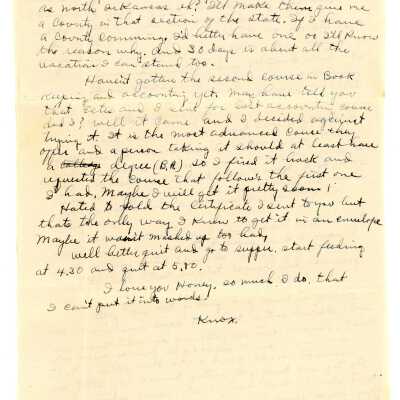 as north Arkansas eh? I'll make them give me
a County in that section of the state. If I have
a County Comming I'd better have one or I'll know
the reason why. And 30 days is about all the
vacation I can stand too.
Haven't gotten the second course in Book
Keeping and accounting yet. May have told you
that and I sent for accountin course
did I? well it came and I decided against
trying it. It is the most advanced course they
offer and a person taking it should at least have
a degree (B,A) so I fired it back and
requested the course that follows the first one
I had, Maybe I will get it pretty soon!
Hated to fold the Certificate I sent to you but
thats the only way I knew to get it in an envelope
Maybe it wasn't mashed up too bad,
well better quit and go to supper, start feeding
at 4.30 and quit at 5,30.
I love you Honey, so much I do, that
I can't put it into words.
Knox.